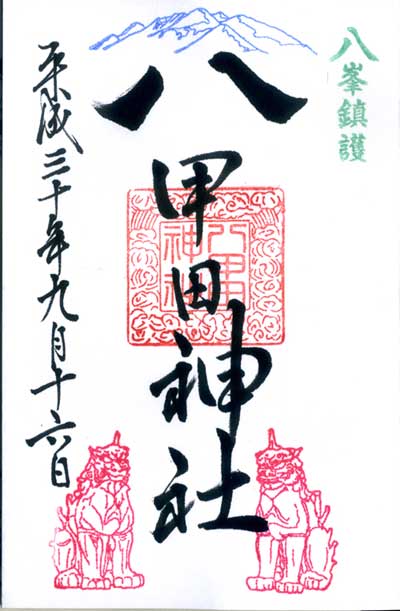 八峯鎮護
八甲田神社
八甲田
神社
平成三十年九月十六日